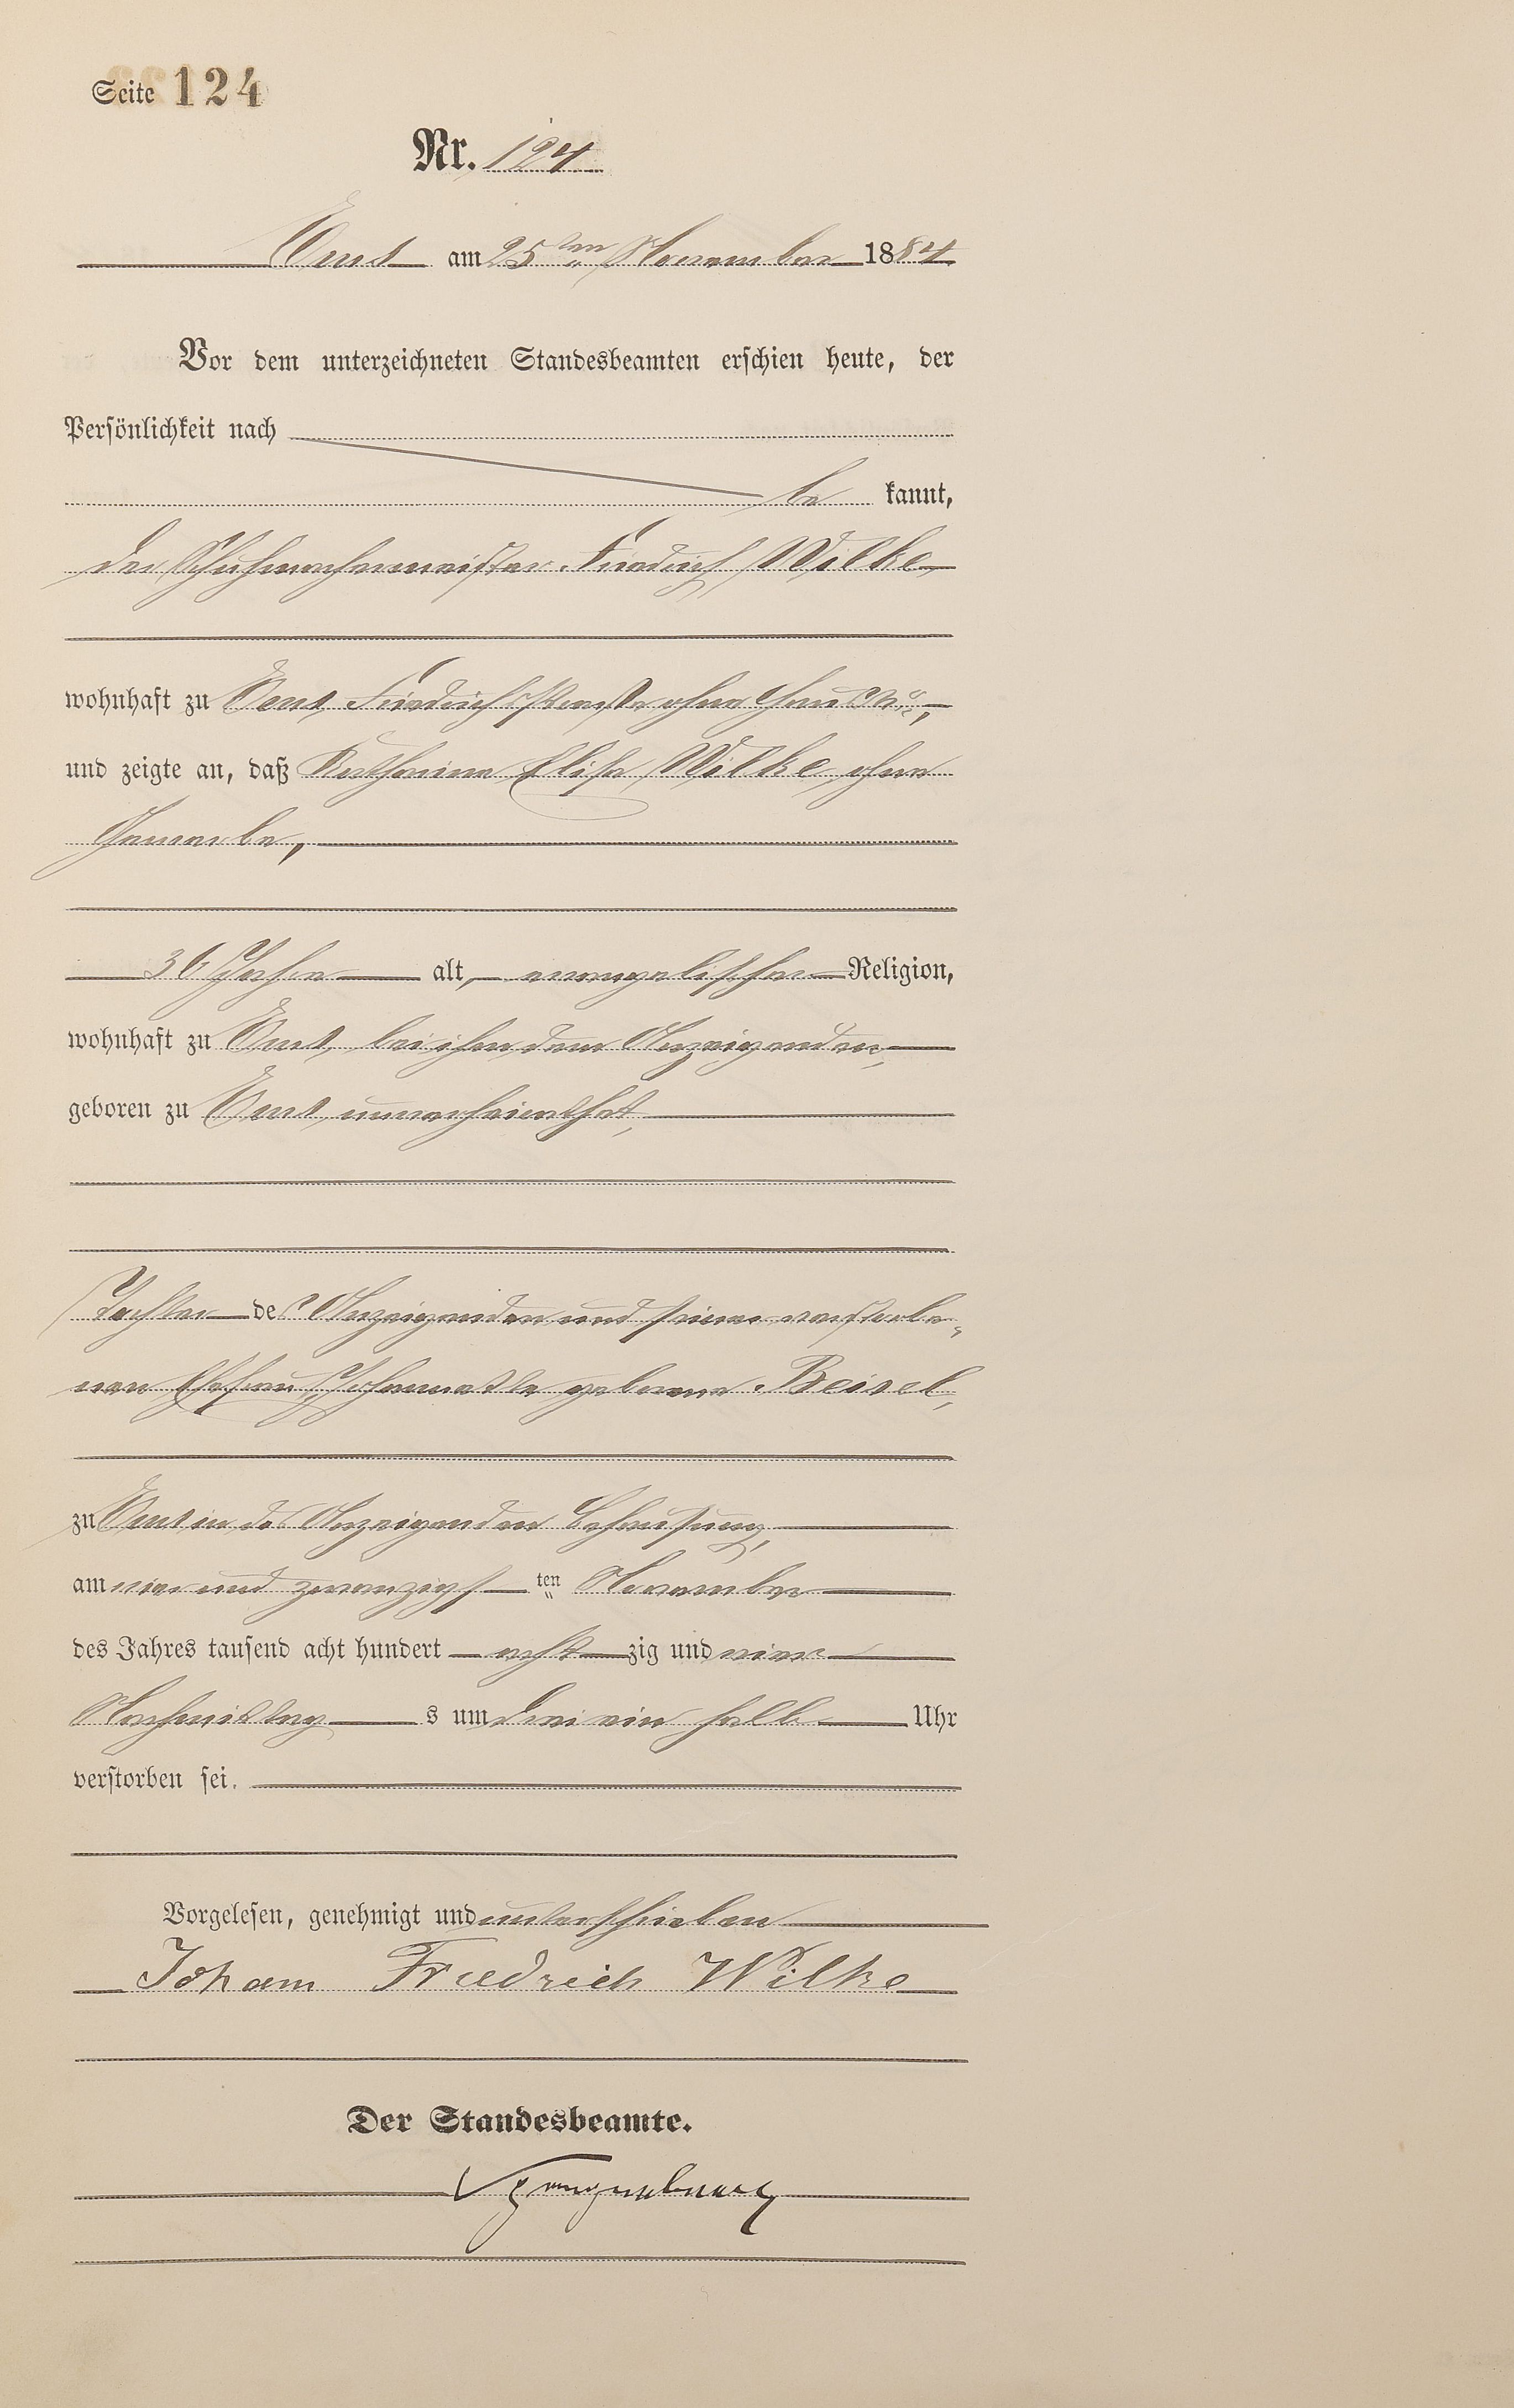 Seite 124
Nr. 124
Ems am 25ten November 1884
Vor dem unterzeichneten Standesbeamten erschien heute, der
Persönlichkeit nach
be kannt,
der Schuhmachermeister Friedrich Wilke,
wohnhaft zu Ems, Friedrichstraße ohne Haus Nr.,
und zeigte an, daß Katharina Elise Wilke, ohne
Gewerbe,
36 Jahre alt, evangelischer Religion,
wohnhaft zu Ems, bei ihm dem Anzeigenden,
geboren zu Ems, unverheirathet,
Tochter des Anzeigenden und seiner verstorbe-
nen Ehefrau, geborene Beisel,
zu Ems in des Anzeigenden Behausung,
am vier und zwanzigs ten November
des Jahres tausend acht hundert acht zig und vier
Nachmittag s um drei ein halb Uhr
verstorben sei.
Vorgelesen, genehmigt und unterschrieben
Joham Friedrich Wilke
Der Standesbeamte.